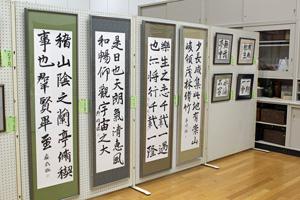 稽山陰之蘭亭脩禊
事也羣賢畢至
是日也天朗氣清惠風
和暢仰觀宇宙之大
樂生之志千載一遇
也亦將行千載一隆
少長咸集此地有崇山
峻領茂林脩竹